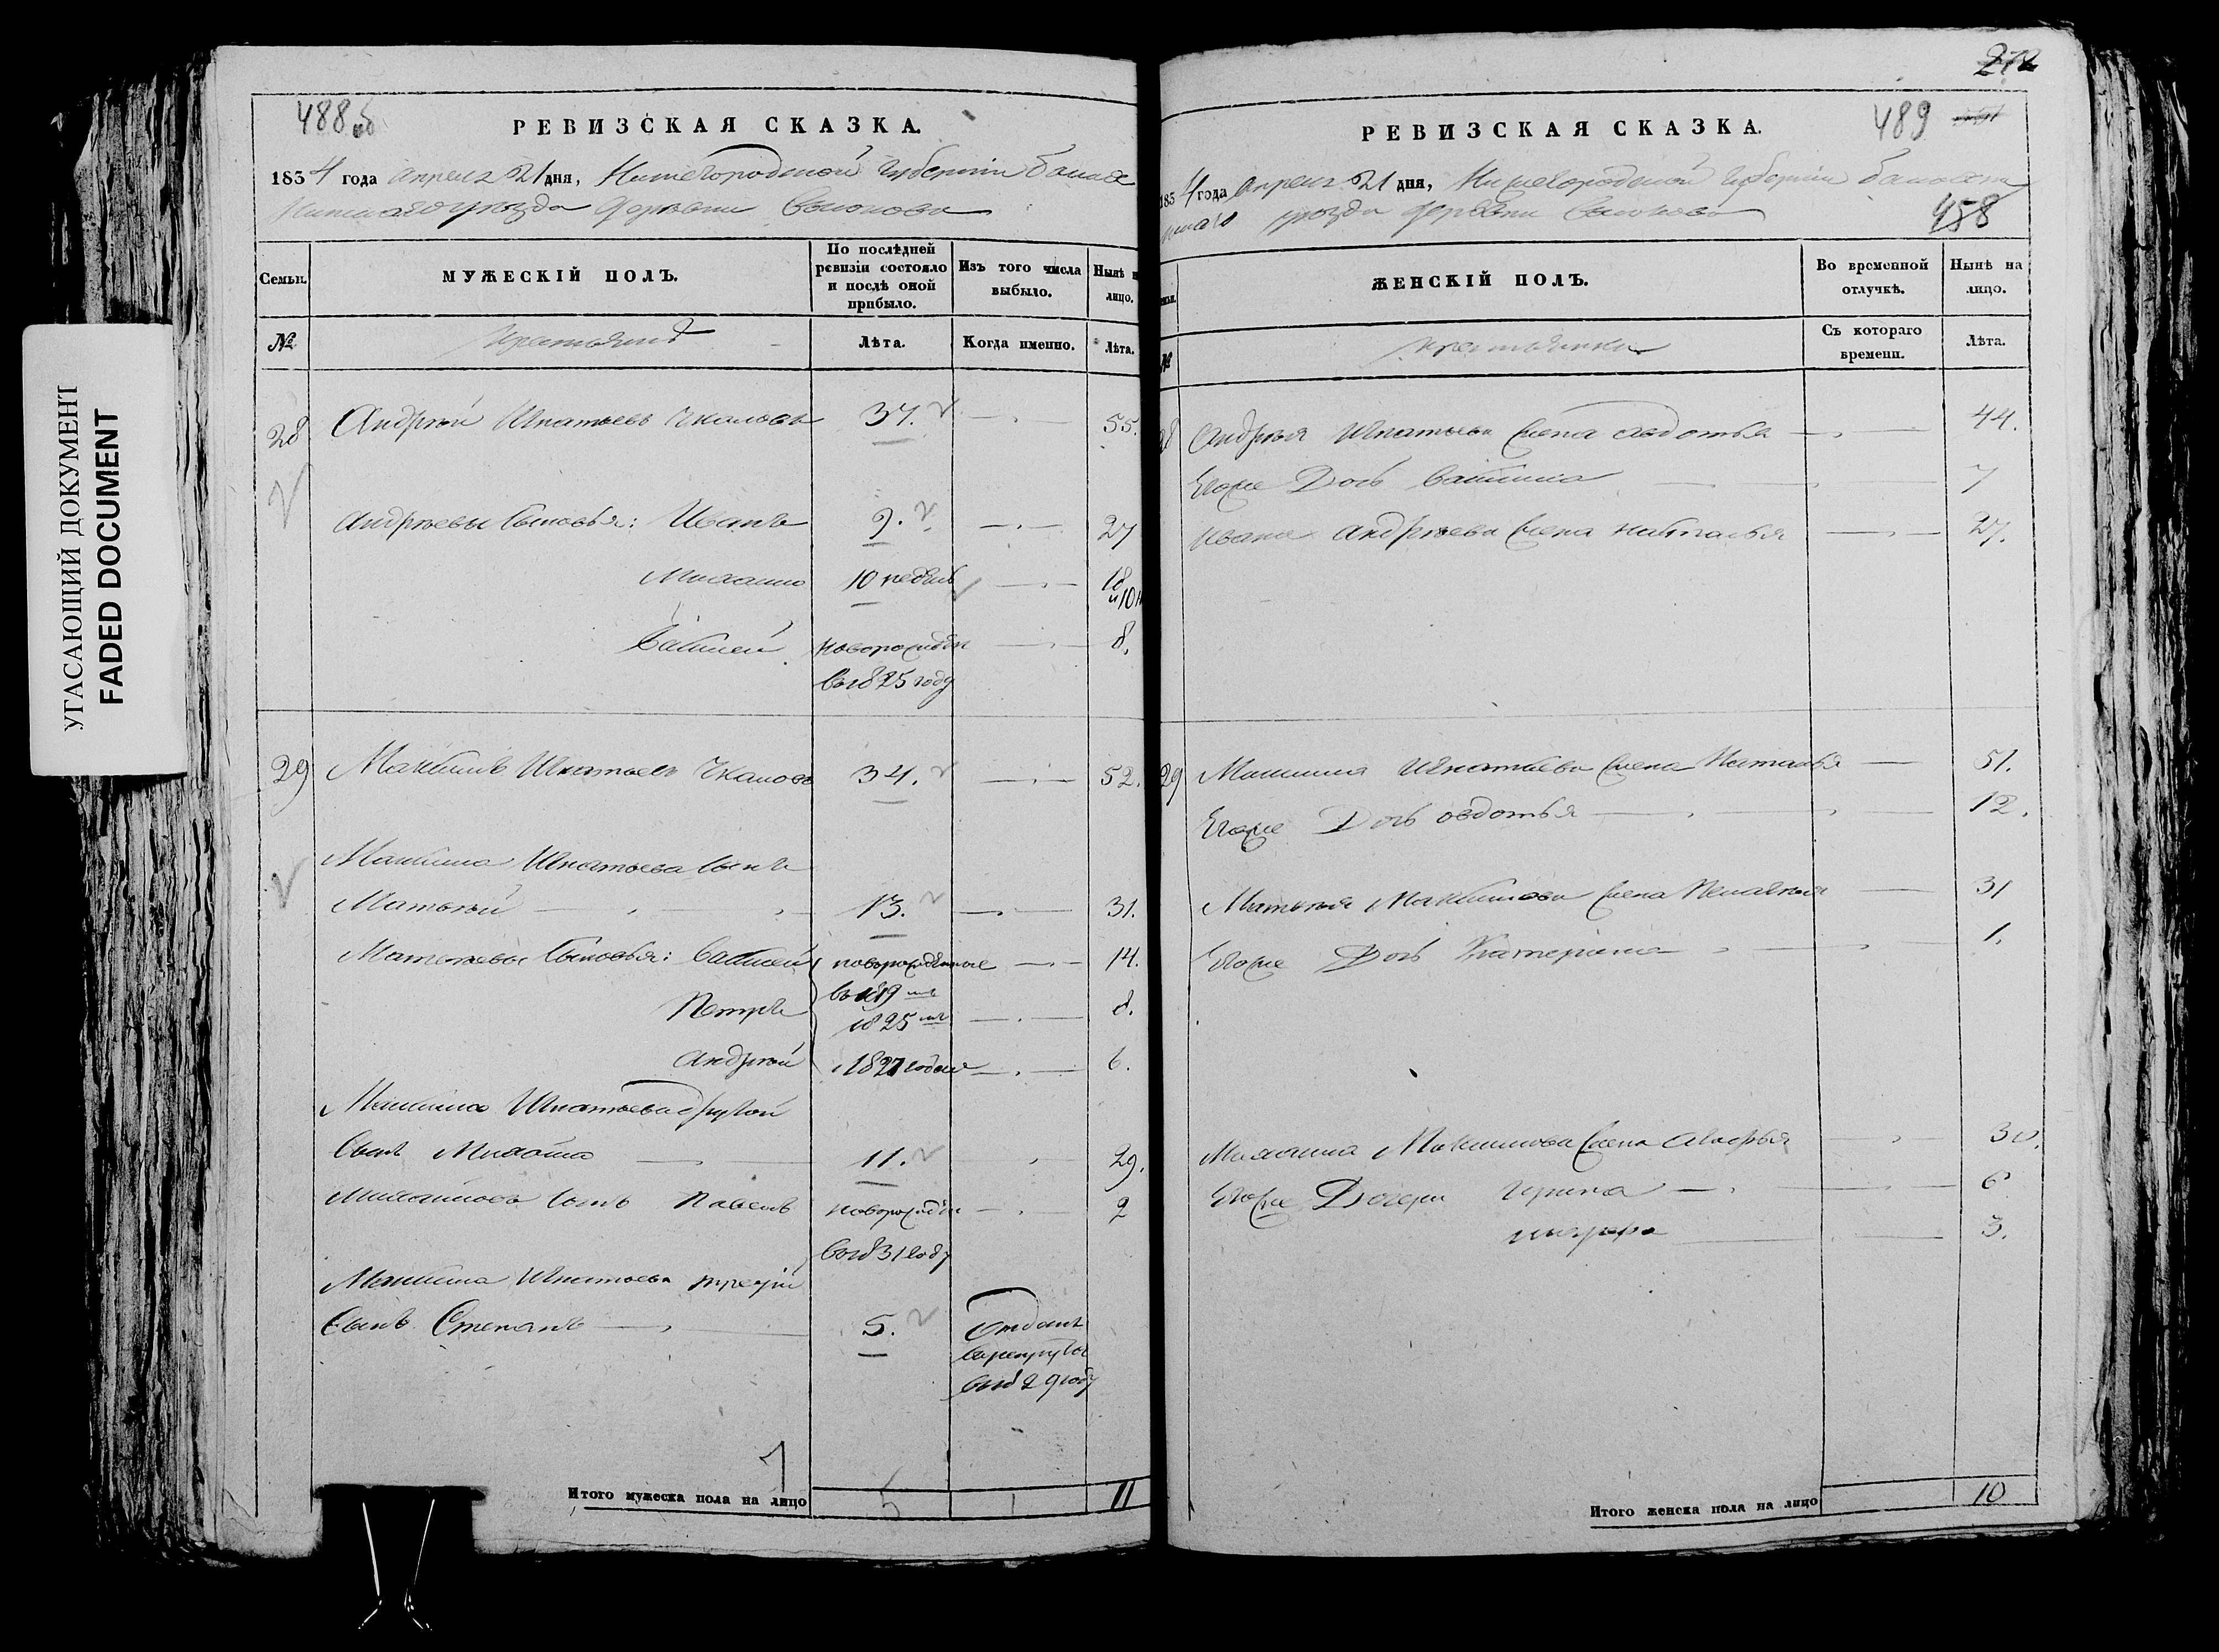 УГАСАЮЩИЙ ДОКУМЕНТ
FADED DOCUMENT
488 об
РЕВИЗСКАЯ СКАЗКА.
1834 года апреля 21 дня, Нижегородской губернии Балах
нинскаго уезда деревни
Семьи.
МУЖЕСКІЙ ПОЛЪ.
По послѣдней ревизіи состояло и послѣ оной прибыло.
Изъ того числа выбыло.
Нынѣ н лицо.
№
Крестьянъ
Лѣта.
Когда именно.
Лѣта.
28 Андрей Игнатьевъ Чкаловъ 37. 55.
Андреевы сыновья: Иванъ 9. 27
Михайло 10 недель 18 и 10 н
Василей новорожден 8.
въ 1825 году
29 Максимъ Игнатьевъ Чкаловъ 34. 52.
Максима Игнатьева сынъ
Матвей 13. 31.
Матвеевы сыновья: Василей новорожденные 14.
Петръ въ 1819 мъ 1825 мъ 8.
Андрей 1827 годахъ 6.
Максима Игнатьева другой
сынъ Михайла 11. 29.
Михайловъ сынъ Павелъ новорожден 2
въ 1831 году
Максима Игнатьева третий
сынъ Степанъ 5. Отданъ
в рекруты
въ 1829 году
7
Итого мужеска пола на лицо 5 1 11
272
489
РЕВИЗСКАЯ СКАЗКА.
1834 года апреля 21 дня, Нижегородской губернии Балахни
нскаго уезда деревни
458
ЖЕНСКІЙ ПОЛЪ.
Во временной отлучкѣ.
Нынѣ на лицо.
№
Крестьянки
Съ котораго времени.
Лѣта.
28 Андрея Игнатьева жена Авдотья 44.
Егоже дочь 7
Ивана Андреева жена Наталья 27.
29 Максима Игнатьева жена Наталья 51.
Егоже дочь Авдотья 12.
Матвея Максимова жена Пелагея 31
Егоже дочь Катерина 1.
Михайла Максимова жена 30.
Егоже дочери Ирина 6
3.
Итого женска пола на лицо 10